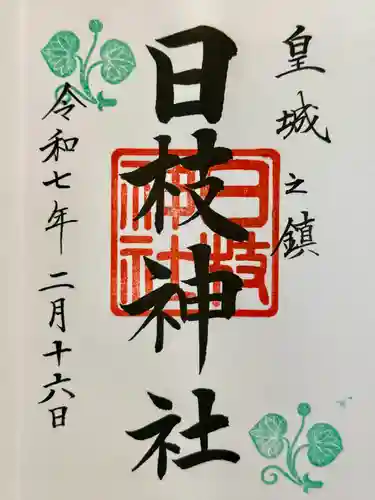 皇城之鎮
日枝神社
日枝神社
令和七年二月十六日